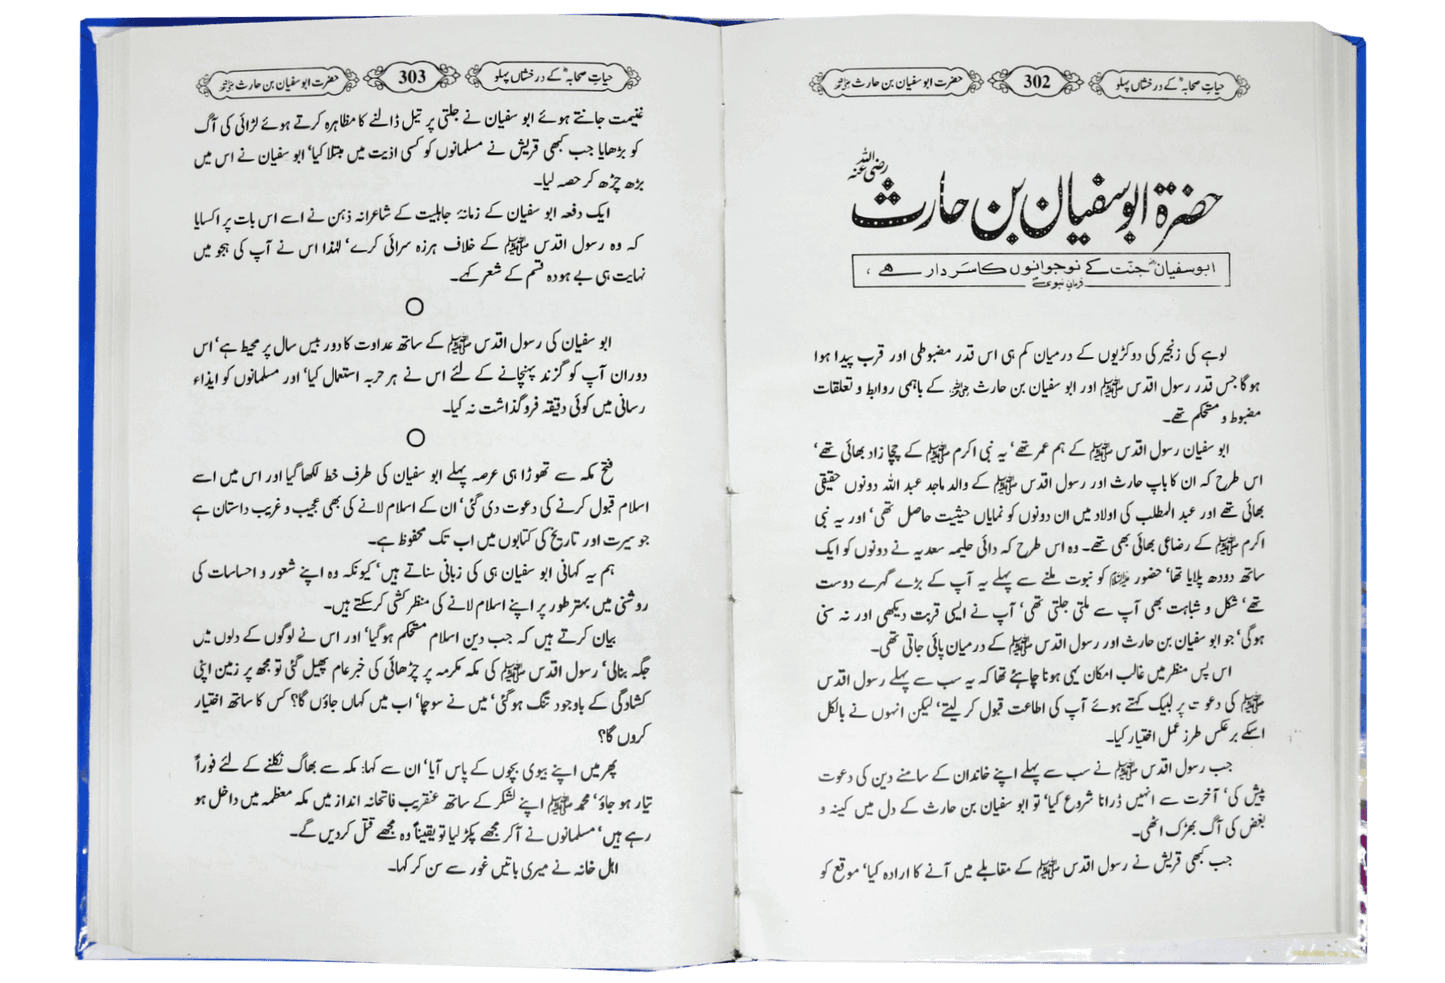 حیاتِ صحابہؓ کے درخشاں پہلو
302
حضرت ابو سفیان بن حارث رضی اللہ عنہ
حضرۃ ابو سفیان بن حارث رضی اللہ عنہ
ابوسفیانؓ جنّت کے نوجوانوں کا سَردار ہے،
فرمانِ نبویؐ
لوہے کی زنجیر کی دو کڑیوں کے درمیان کم ہی اس قدر مضبوطی اور قرب پیدا ہوا
ہو گا جس قدر رسول اقدس ﷺ اور ابو سفیان بن حارث رضی اللہ عنہ کے باہمی روابط و تعلقات
مضبوط و مستحکم تھے۔
ابو سفیان رسول اقدس ﷺ کے ہم عمر تھے‘ یہ نبی اکرم ﷺ کے چچا زاد بھائی تھے‘
اس طرح کہ ان کا باپ حارث اور رسول اقدس ﷺ کے والد ماجد عبد اللہ دونوں حقیقی
بھائی تھے اور عبد المطلب کی اولاد میں ان دونوں کو نمایاں حیثیت حاصل تھی‘ اور یہ نبی
اکرم ﷺ کے رضاعی بھائی بھی تھے۔ وہ اس طرح کہ دائی حلیمہ سعدیہ نے دونوں کو ایک
ساتھ دودھ پلایا تھا‘ حضور علیہ السلام کو نبوت ملنے سے پہلے یہ آپ کے بڑے گہرے دوست
تھے‘ شکل و شباہت بھی آپ سے ملتی جلتی تھی‘ آپ نے ایسی قربت دیکھی اور نہ سنی
ہو گی‘ جو ابو سفیان بن حارث اور رسول اقدس ﷺ کے درمیان پائی جاتی تھی۔
اس پس منظر میں غالب امکان یہی ہونا چاہئے تھا کہ یہ سب سے پہلے رسول اقدس
ﷺ کی دعوت پر لبیک کہتے ہوئے آپ کی اطاعت قبول کر لیتے‘ لیکن انہوں نے بالکل
اسکے برعکس طرز عمل اختیار کیا۔
جب رسول اقدس ﷺ نے سب سے پہلے اپنے خاندان کے سامنے دین کی دعوت
پیش کی‘ آخرت سے انہیں ڈرانا شروع کیا‘ تو ابو سفیان بن حارث کے دل میں کینہ و
بغض کی آگ بھڑک اٹھی۔
جب کبھی قریش نے رسول اقدس ﷺ کے مقابلے میں آنے کا ارادہ کیا‘ موقع کو
حیاتِ صحابہؓ کے درخشاں پہلو
303
حضرت ابو سفیان بن حارث رضی اللہ عنہ
غنیمت جانتے ہوئے ابو سفیان نے جلتی پر تیل ڈالنے کا مظاہرہ کرتے ہوئے لڑائی کی آگ
کو بڑھایا جب کبھی قریش نے مسلمانوں کو کسی اذیت میں مبتلا کیا‘ ابو سفیان نے اس میں
بڑھ چڑھ کر حصہ لیا۔
ایک دفعہ ابو سفیان کے زمانۂ جاہلیت کے شاعرانہ ذہن نے اسے اس بات پر اکسایا
کہ وہ رسول اقدس ﷺ کے خلاف ہرزہ سرائی کرے‘ لہٰذا اس نے آپ کی ہجو میں
نہایت ہی بے ہودہ قسم کے شعر کہے۔
ابو سفیان کی رسول اقدس ﷺ کے ساتھ عداوت کا دور بیس سال پر محیط ہے‘ اس
دوران آپ کو گزند پہنچانے کے لئے اس نے ہر حربہ استعمال کیا‘ اور مسلمانوں کو ایذاء
رسانی میں کوئی دقیقہ فروگذاشت نہ کیا۔
فتح مکہ سے تھوڑا ہی عرصہ پہلے ابو سفیان کی طرف خط لکھا گیا اور اس میں اسے
اسلام قبول کرنے کی دعوت دی گئی‘ ان کے اسلام لانے کی بھی عجیب و غریب داستان ہے
جو سیرت اور تاریخ کی کتابوں میں اب تک محفوظ ہے۔
ہم یہ کہانی ابو سفیان ہی کی زبانی سناتے ہیں‘ کیونکہ وہ اپنے شعور و احساسات کی
روشنی میں بہتر طور پر اپنے اسلام لانے کی منظر کشی کر سکتے ہیں۔
بیان کرتے ہیں کہ جب دین اسلام مستحکم ہو گیا‘ اور اس نے لوگوں کے دلوں میں
جگہ بنالی‘ رسول اقدس ﷺ کی مکہ مکرمہ پر چڑھائی کی خبر عام پھیل گئی تو مجھ پر زمین اپنی
کشادگی کے باوجود تنگ ہو گئی‘ میں نے سوچا‘ اب میں کہاں جاؤں گا؟ کس کا ساتھ اختیار
کروں گا؟
پھر میں اپنے بیوی بچوں کے پاس آیا‘ ان سے کہا: مکہ سے بھاگ نکلنے کے لئے فوراً
تیار ہو جاؤ‘ محمد ﷺ اپنے لشکر کے ساتھ عنقریب فاتحانہ انداز میں مکہ معظمہ میں داخل ہو
رہے ہیں‘ مسلمانوں نے آکر مجھے پکڑ لیا تو یقیناً وہ مجھے قتل کر دیں گے۔
اہل خانہ نے میری باتیں غور سے سن کر کہا۔